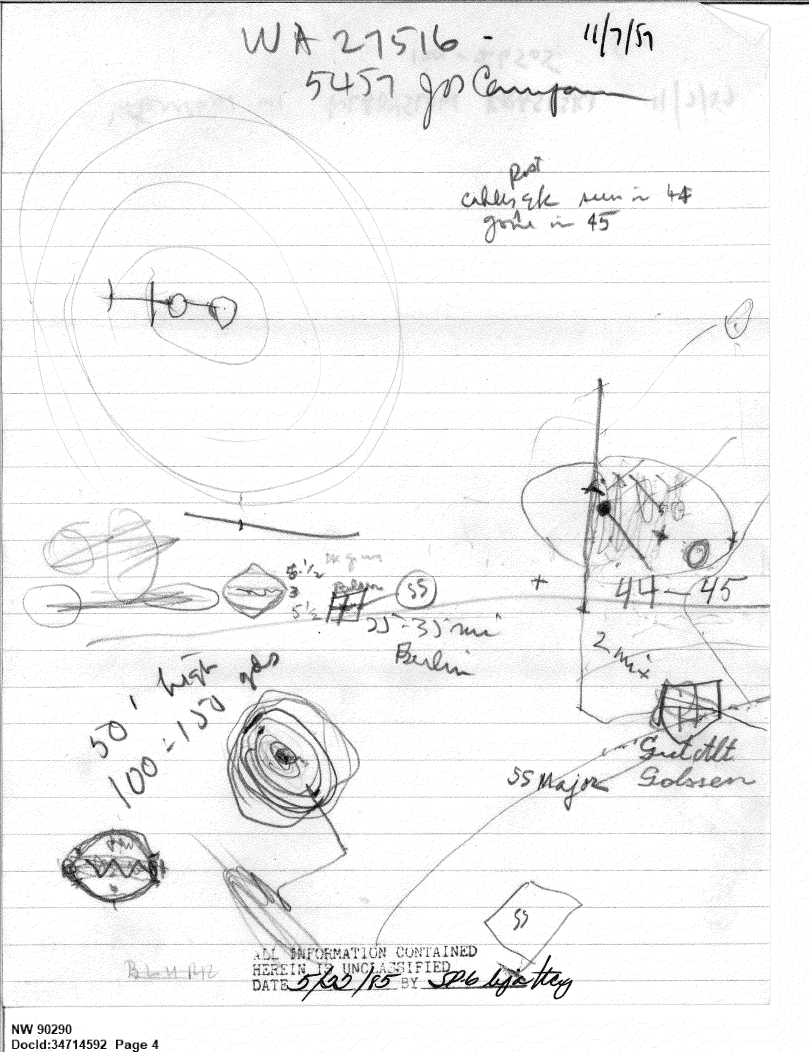 WA 27516 - 11/7/57
5457 Jos Campau
post
cables qk seen in 44
gone in 45
5 1/2
3
5 1/2
Berlin
SS
25-35 mi
Berlin
44-45
2 mi
50' high
100-150 yds
SS Major
Gut Alt
Golssen
SS
ALL INFORMATION CONTAINED
HEREIN IS UNCLASSIFIED
DATE 5/22/85 BY
NW 90290
DocId:34714592 Page 4